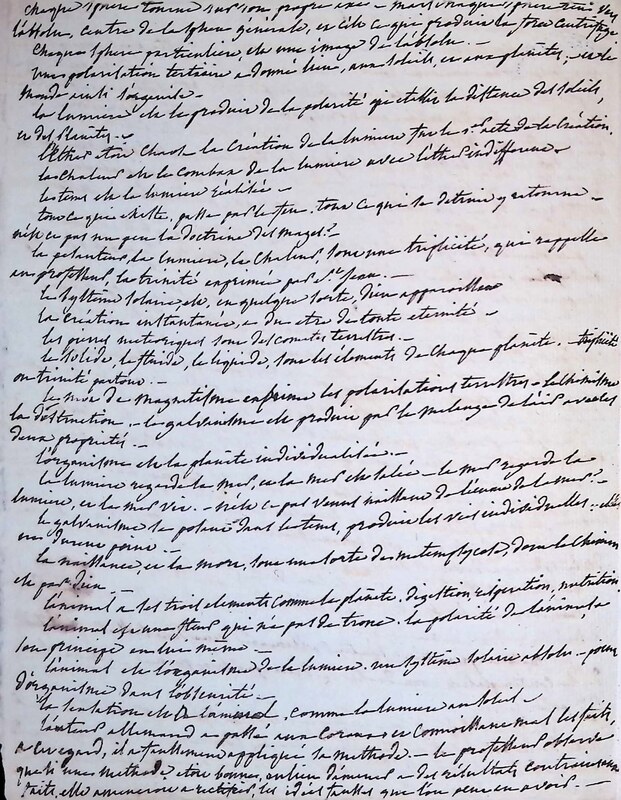 chaque sphere tourne sur son propre axe - mais chaque sphere tend vers
l'absolu, centre de la sphere générale, et c'est ce que produit la force centrifuge
chaque sphere particuliere, est une image de l'absolu. -
une polarisation tertiaire a donné lieu, aux soleils, et aux planètes, - et le
monde ainsi s'organise -
la lumiere est le produit de la polarité qui etablit la distance des soleils,
et des planètes. -
l'Ether etoit chaos. la création de la lumiere fut le 1er acte de la création.
la chaleur est le combat de la lumiere avec l'ether indifferent
le tems est la lumiere réalisée -
tout ce que existe, passe par le feu. tout ce qui se detruit y retourne -
n'est ce pas un peu la doctrine des mages?
la pesanteur, la lumiere, la chaleur, sont une triplicité, qui rappelle
au professeur, la trinité exprimée par St Jean. -
le systême solaire est, en quelque sorte, Dieu apparoissant
la création instantanée, a du etre de toute eternité -
les pierres meteoriques sont des cometes terrestres. -
le solide, le fluide, le liquide, sont les elements de chaque planète. - triplicité
ou trinité partout. -
le mot de magnetisme exprime les polarisations terrestres - le chimisme
la destruction, - le galvanisme est produit par le mélange de l'air avec les
deux propriétés. -
l'organisme est la planète individualisée. -
la lumiere regarde la mer, et la mer est salée - la mer regarde la
lumiere, et la mer vit. -
le galvanisme se polarise dans le tems, produit les vies individuelles -
la naissance, et la mort, sont une sorte de metempsycose, dont le chemin
est par Dieu -
l'animal a les trois elements comme la planète. digestion, respiration, nutrition
l'animal est une fleur qui n'a pas de tronc. la polarité de l'animal a
son principe en lui même -
l'animal est l'organisme de la lumiere. un systême solaire absolu. -
d'organisme dans l'obscurité. -
la sensation est à l'animal, comme la lumiere au soleil -
l'auteur allemand a passé aux et connoissant mal les faits,
a cet egard, il a faussement appliqué sa methode. - le professeur observe
que si une methode, etoit bonne, au lieu d'amener a des résultats contraires aux
faits, elle ameneroit a rectifier, les idées fausses que l'on peut en avoir. -